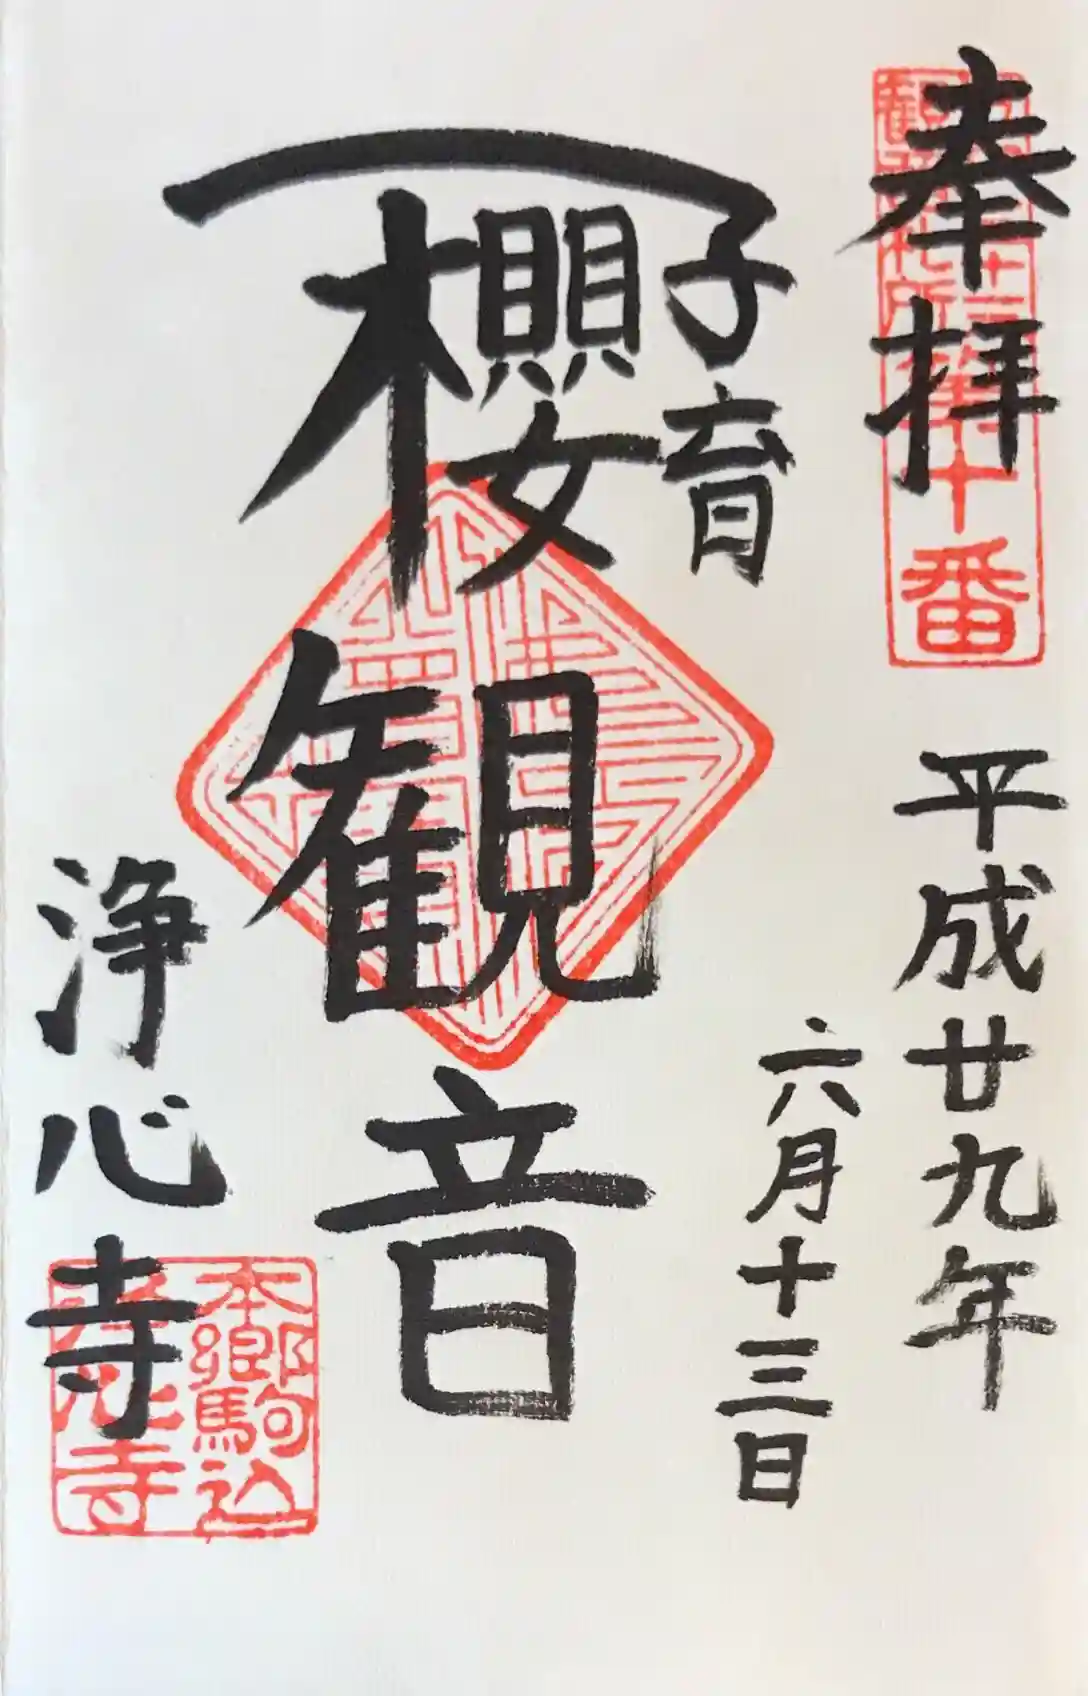 奉拝
十番
平成廿九年
六月十三日
子育
櫻観音
浄心寺
本郷駒込
浄心寺